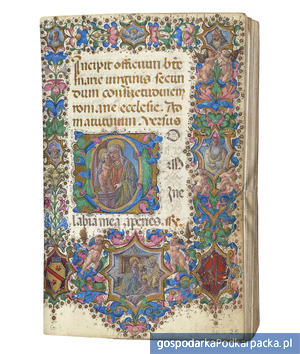 Incipit officium bte
marie virginis secun
dum consuetudinem
romane ecclesie. Ad
matutinum. versus
O
labia mea aperies. R.
gospodarkaPodkarpacka.pl